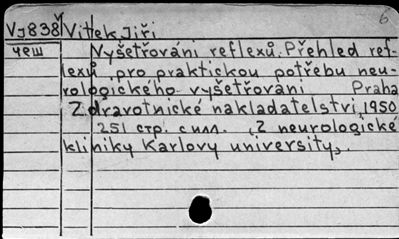 6
Vj838 Vítek Jiří
чеш Vyšetřováni reflexů. Přehled ref-
lexů pro praktickou potřebu neu-
rologického vyšetřováni Praha
Zdravotnické nakladatelství, 1950
251 стр. с илл. (Z neurologické
kliniky Karlovy university).